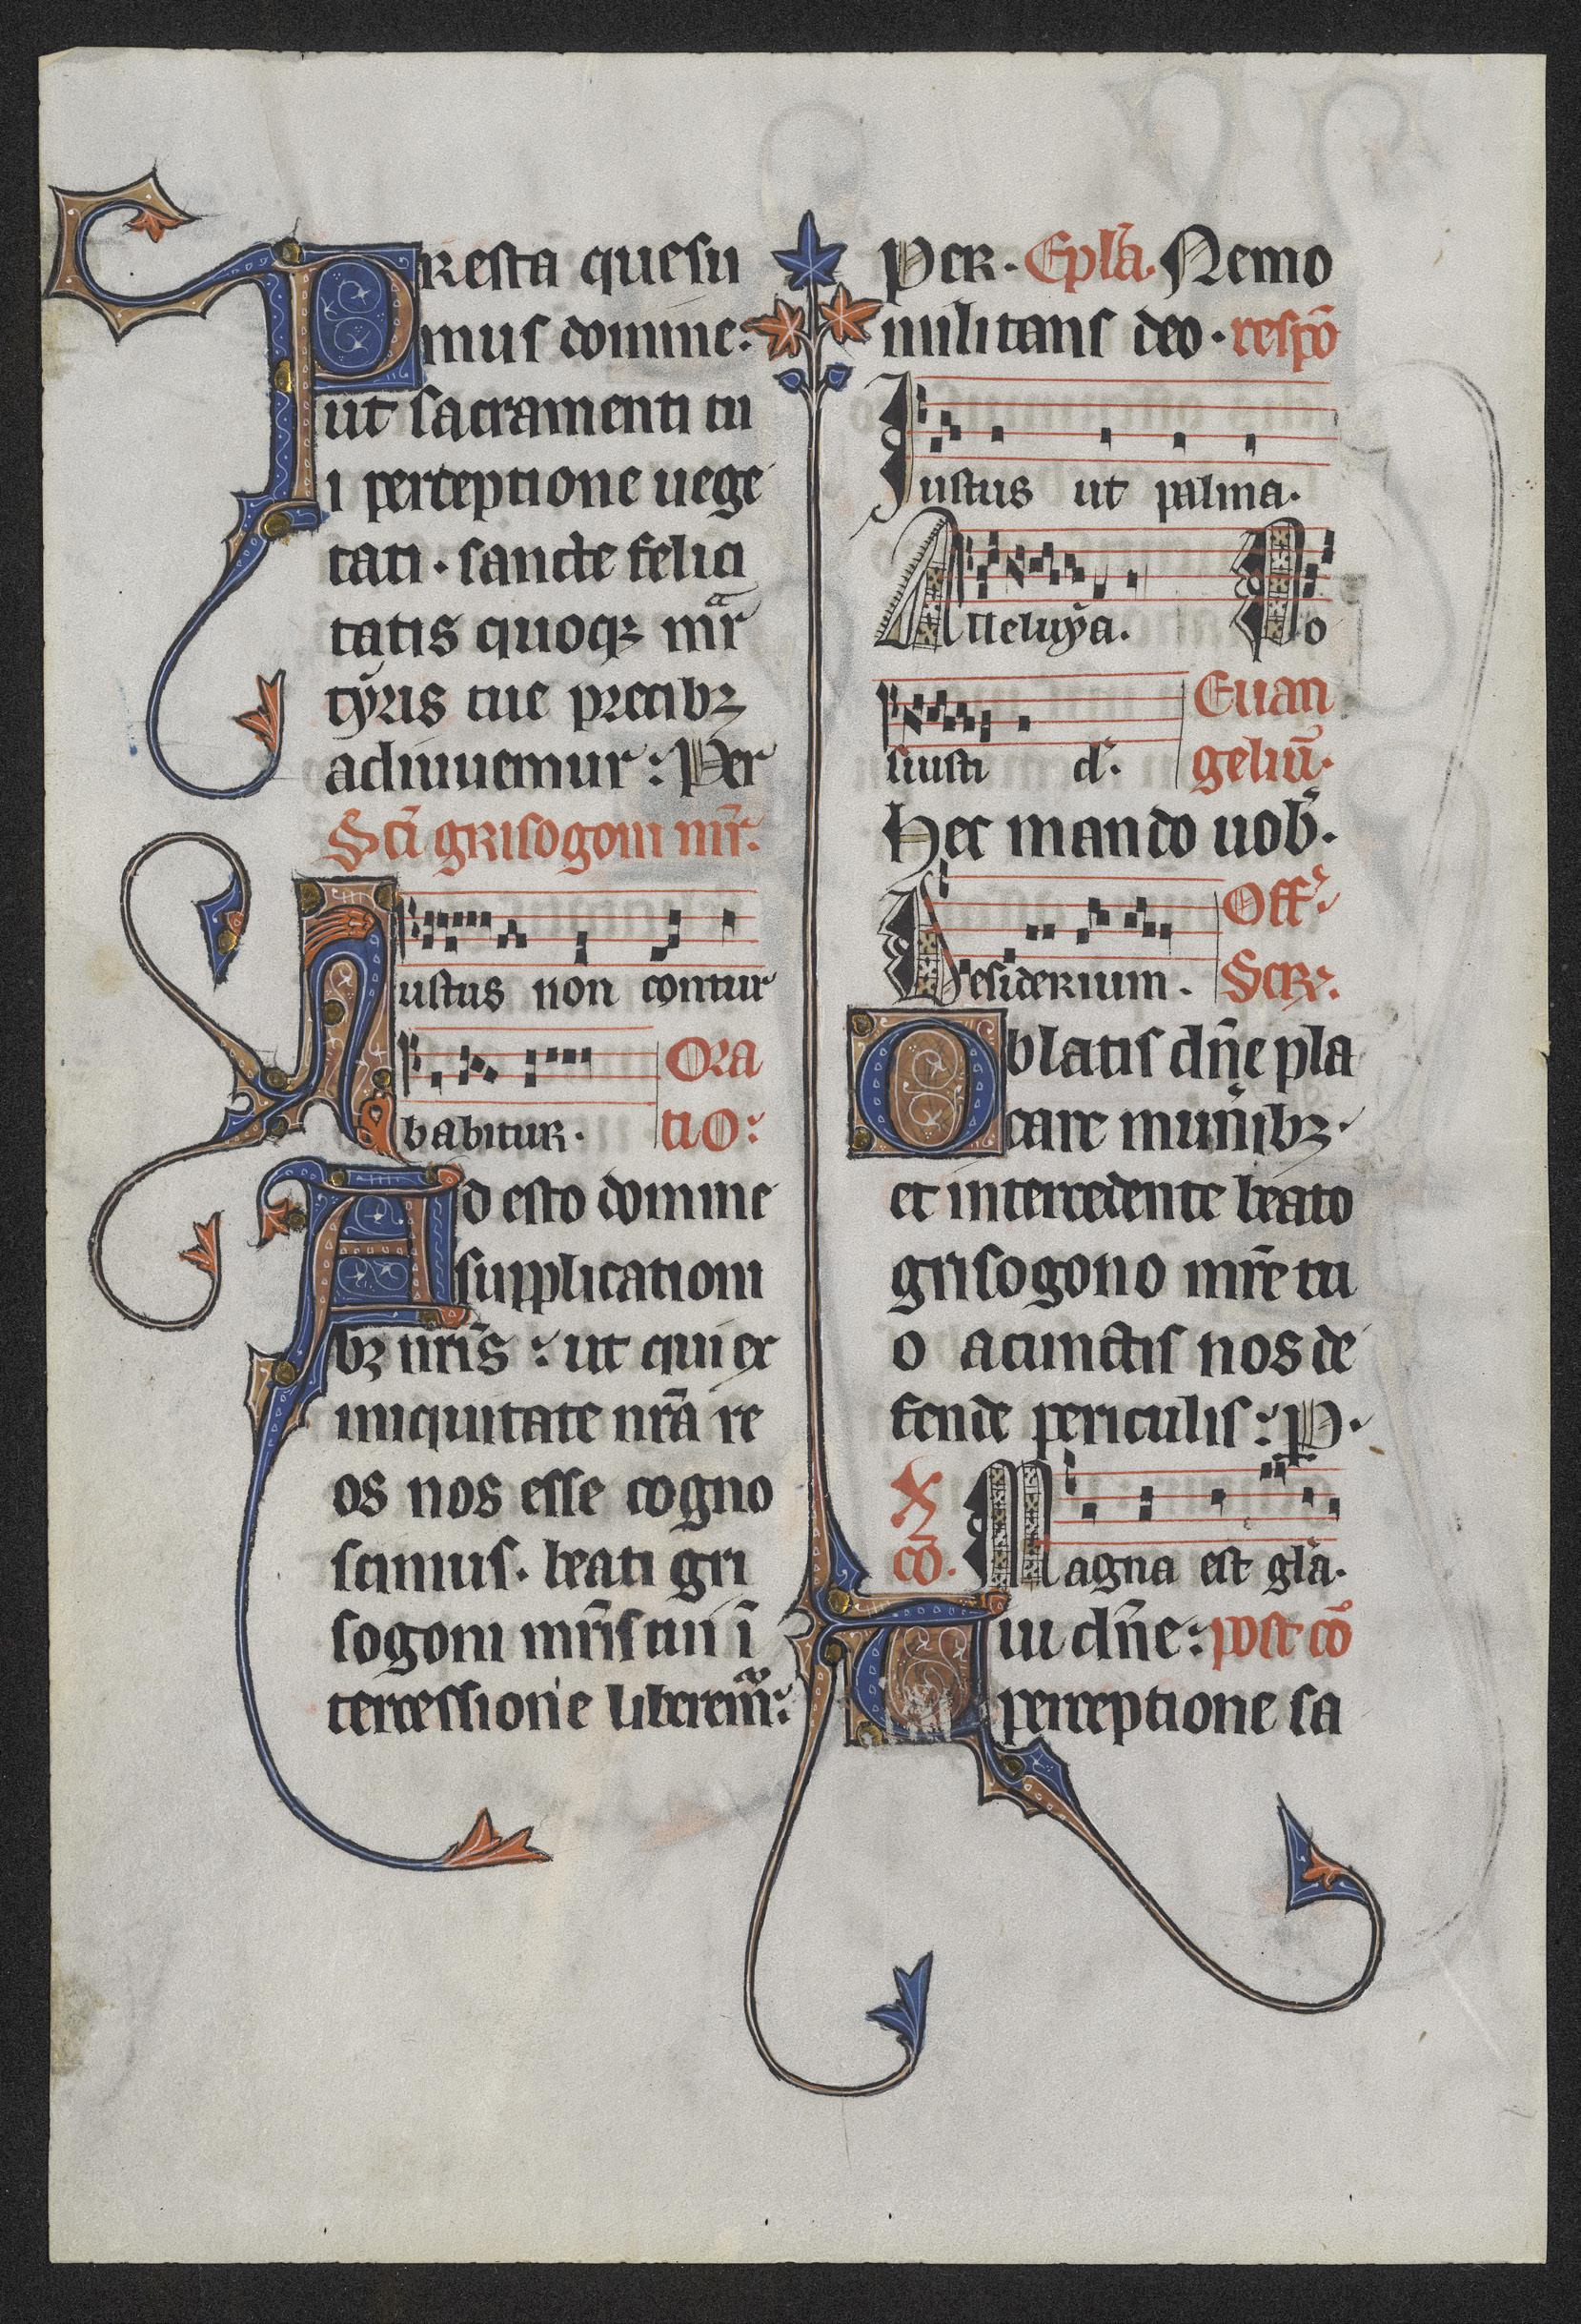 Presta quesu
mus domine:
ut sacramenti tu
i perceptione uege
tati. sancte felici
tatis quoqꝫ mar̃
tẏris tue precibꝫ
adiuuemur: Per
Sc̃i grisogoni mr̃.
Iustus non contur
babitur. Ora
tio:
Ad esto domine
supplicationi
bꝫ nr̃is: ut qui ex
iniquitate nr̃a re
os nos esse cogno
scimus. beati gri
sogoni mr̃is tui ĩ
tercessione liberem̃:
Per. Epl̃a. Nemo
militans deo. respõ
Iustus ut palma.
Alleluẏa. Io
siusti d. Euan
geliũ.
Hec mando uob̃.
Desiderium. Off̃
Secr̃.
Oblatis dñe pla
care muñibꝫ.
et intercedente beato
grisogono mr̃e tu
o acunctis nos de
fende periculis: P.
X
cõ. Magna est gl̃a.
Tui dñe: post cõ
perceptione sa